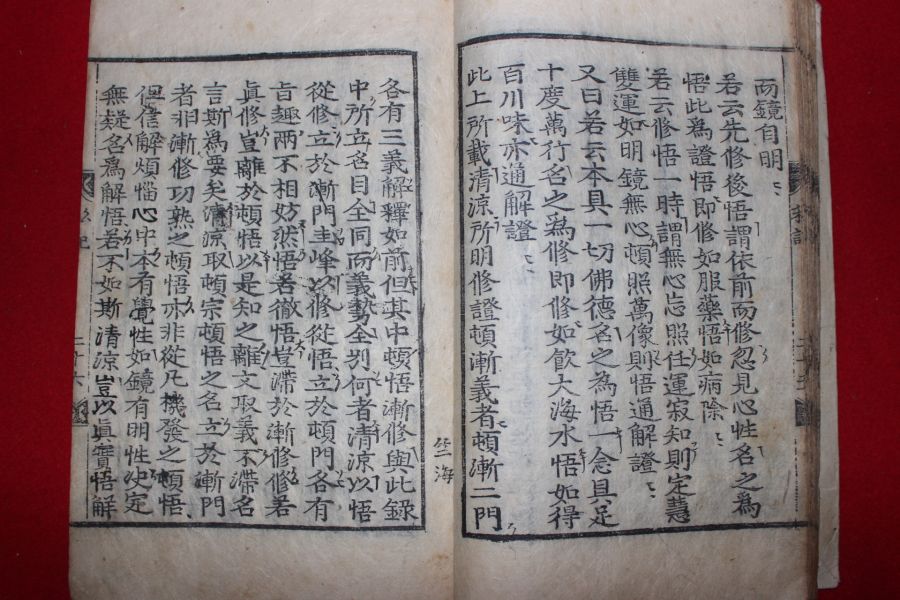 而鏡自明
若云先修後悟謂依前而修忽見心性名之爲
悟此爲證悟即修如服藥悟如病除
若云修悟一時謂無心忘照任運寂知則定慧
雙運如明鏡無心頓照萬像則悟通解證
又曰若云本具一切佛德名之為悟一念具足
十度萬行名之爲修即修如飮大海水悟如得
百川味亦通解證
此上所載清涼所明修證頓漸義者頓漸二門
竺海
各有三義解釋如前但其中頓悟漸修與此錄
中所立名目全同而義勢全別何者清涼以悟
從修立於漸門圭峰以修從悟立於頓門各有
旨趣兩不相妨然悟者徹悟豈滯於漸修修若
眞修豈離於頓悟以是知之離文取義不滯名
言斯爲要矣清涼取頓宗頓悟之名立於漸門
者非漸修功熟之頓悟亦非從凡機發之頓悟
但信解煩惱心中本有覺性如鏡有明性決定
無疑名爲解悟若不如斯清涼豈以眞實悟解
二十六